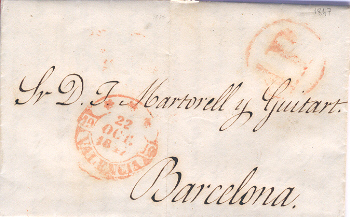 1847
Sr D. J. Martorell y Guitart.
22
OCT.
VALENCIA
Barcelona.